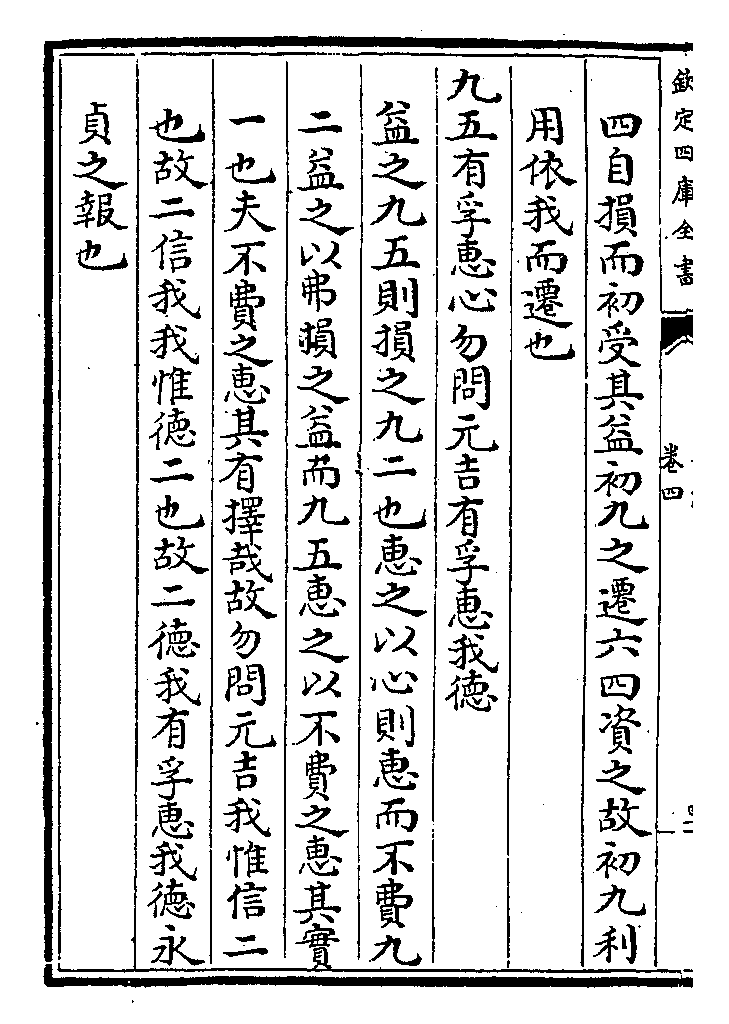 欽定四庫全書
卷四
四自損而初受其益初九之遷六四資之故初九利
用依我而遷也
九五有孚惠心勿問元吉有孚惠我德
益之九五則損之九二也惠之以心則惠而不費九
二益之以弗損之益而九五惠之以不費之惠其實
一也夫不費之惠其有擇哉故勿問元吉我惟信二
也故二信我我惟德二也故二德我有孚惠我德永
貞之報也